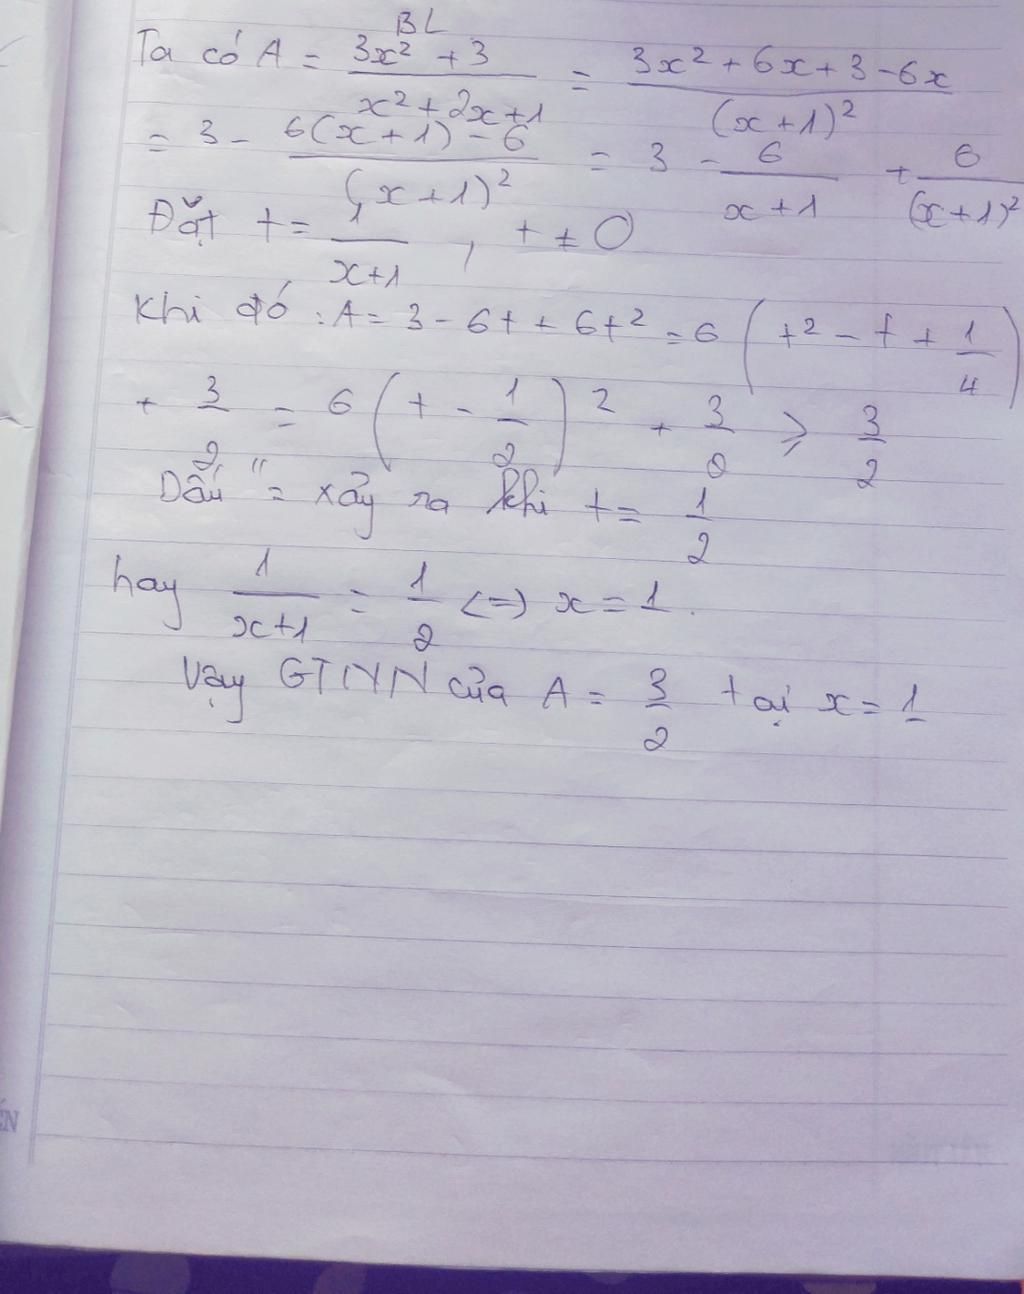 BL
Ta có A = \frac{3x² + 3}{x² + 2x + 1} = \frac{3x² + 6x + 3 - 6x}{(x + 1)²}
= 3 - \frac{6(x + 1) - 6}{(x + 1)²} = 3 - \frac{6}{x + 1} + \frac{6}{(x + 1)²}
Đặt t = \frac{1}{x+1} , t ≠ 0
Khi đó : A = 3 - 6t + 6t² = 6 ( t² - t + \frac{1}{4} )
+ \frac{3}{2} = 6 ( t - \frac{1}{2} )² + \frac{3}{2} ⩾ \frac{3}{2}
Dấu " = xảy ra khi t = \frac{1}{2}
hay \frac{1}{x+1} = \frac{1}{2} <=> x = 1.
Vậy GTNN của A = \frac{3}{2} tại x = 1